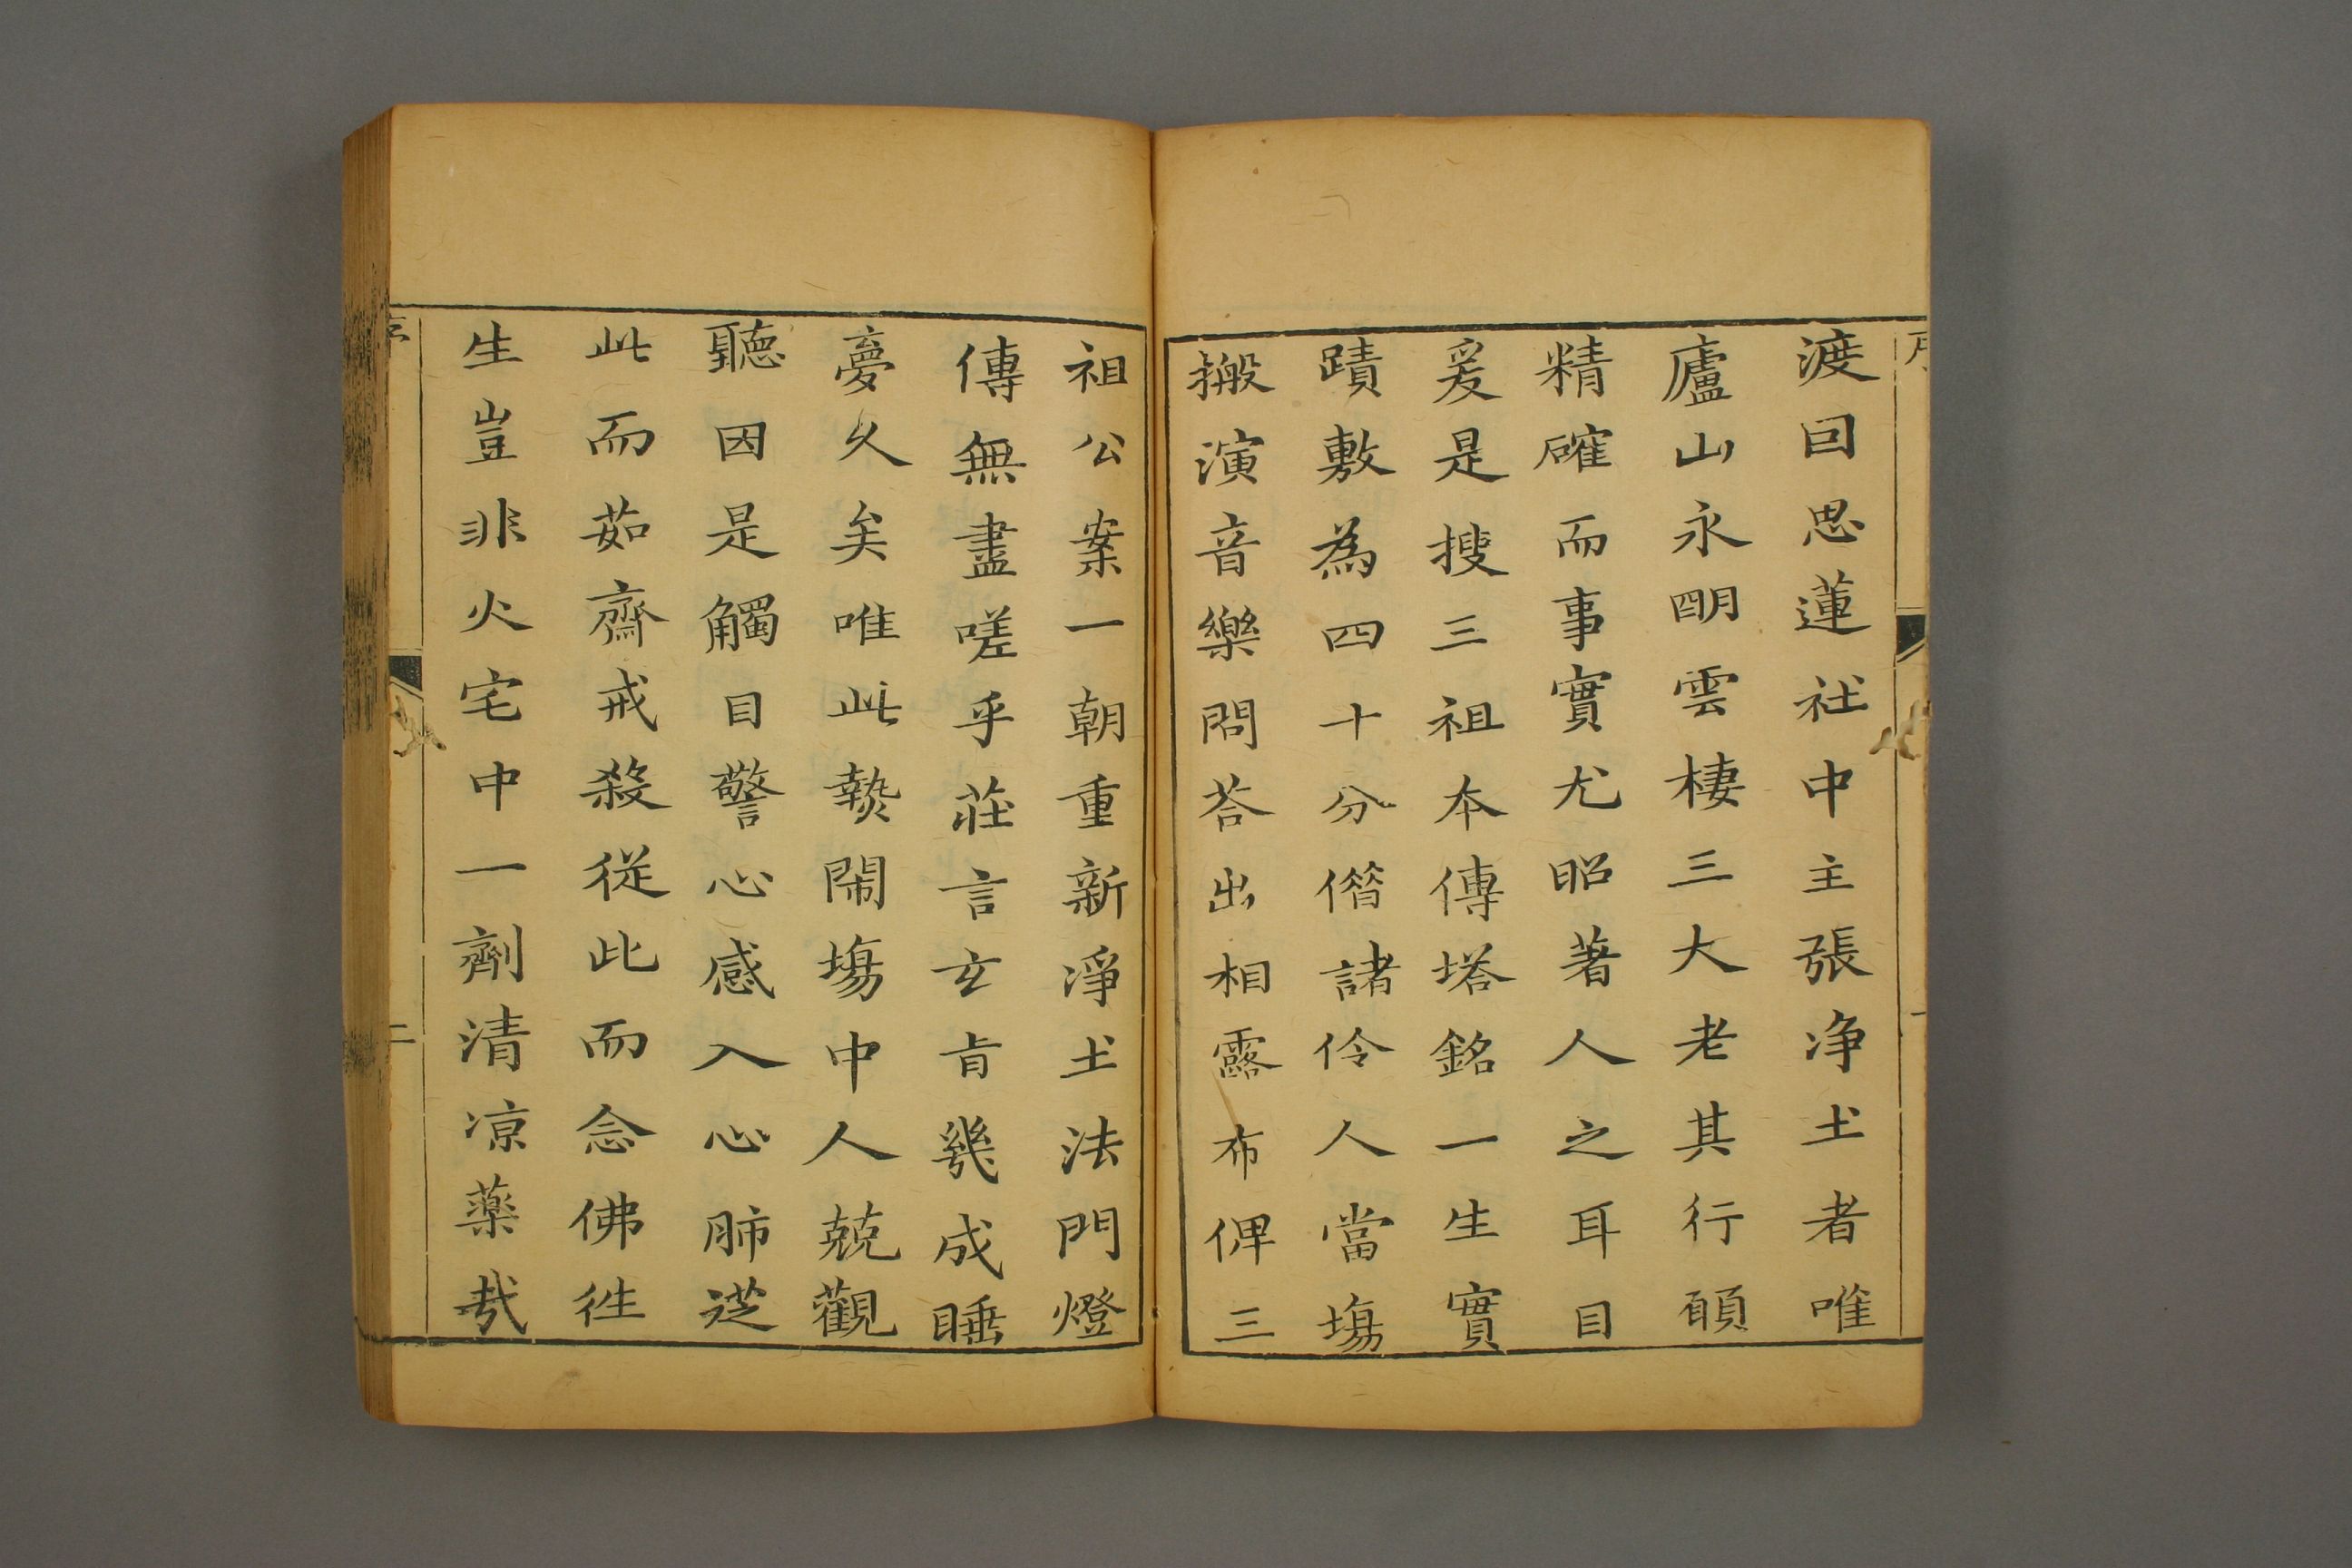 渡囙思蓮社中主張净土者唯
廬山永明雲棲三大老其行願
精確而事實尤昭著人之耳目
爰是搜三祖本傳塔銘一生實
蹟敷為四十分偺諸伶人當塲
搬演音樂問荅出相露布俾三
祖公案一朝重新淨土法門燈
傳無盡嗟乎莊言玄旨幾成睡
夣久矣唯此𤍠閙塲中人兢觀
聽因是觸目警心感入心肺從
此而茹齋戒殺從此而念佛徃
生豈非火宅中一劑清凉薬哉
二